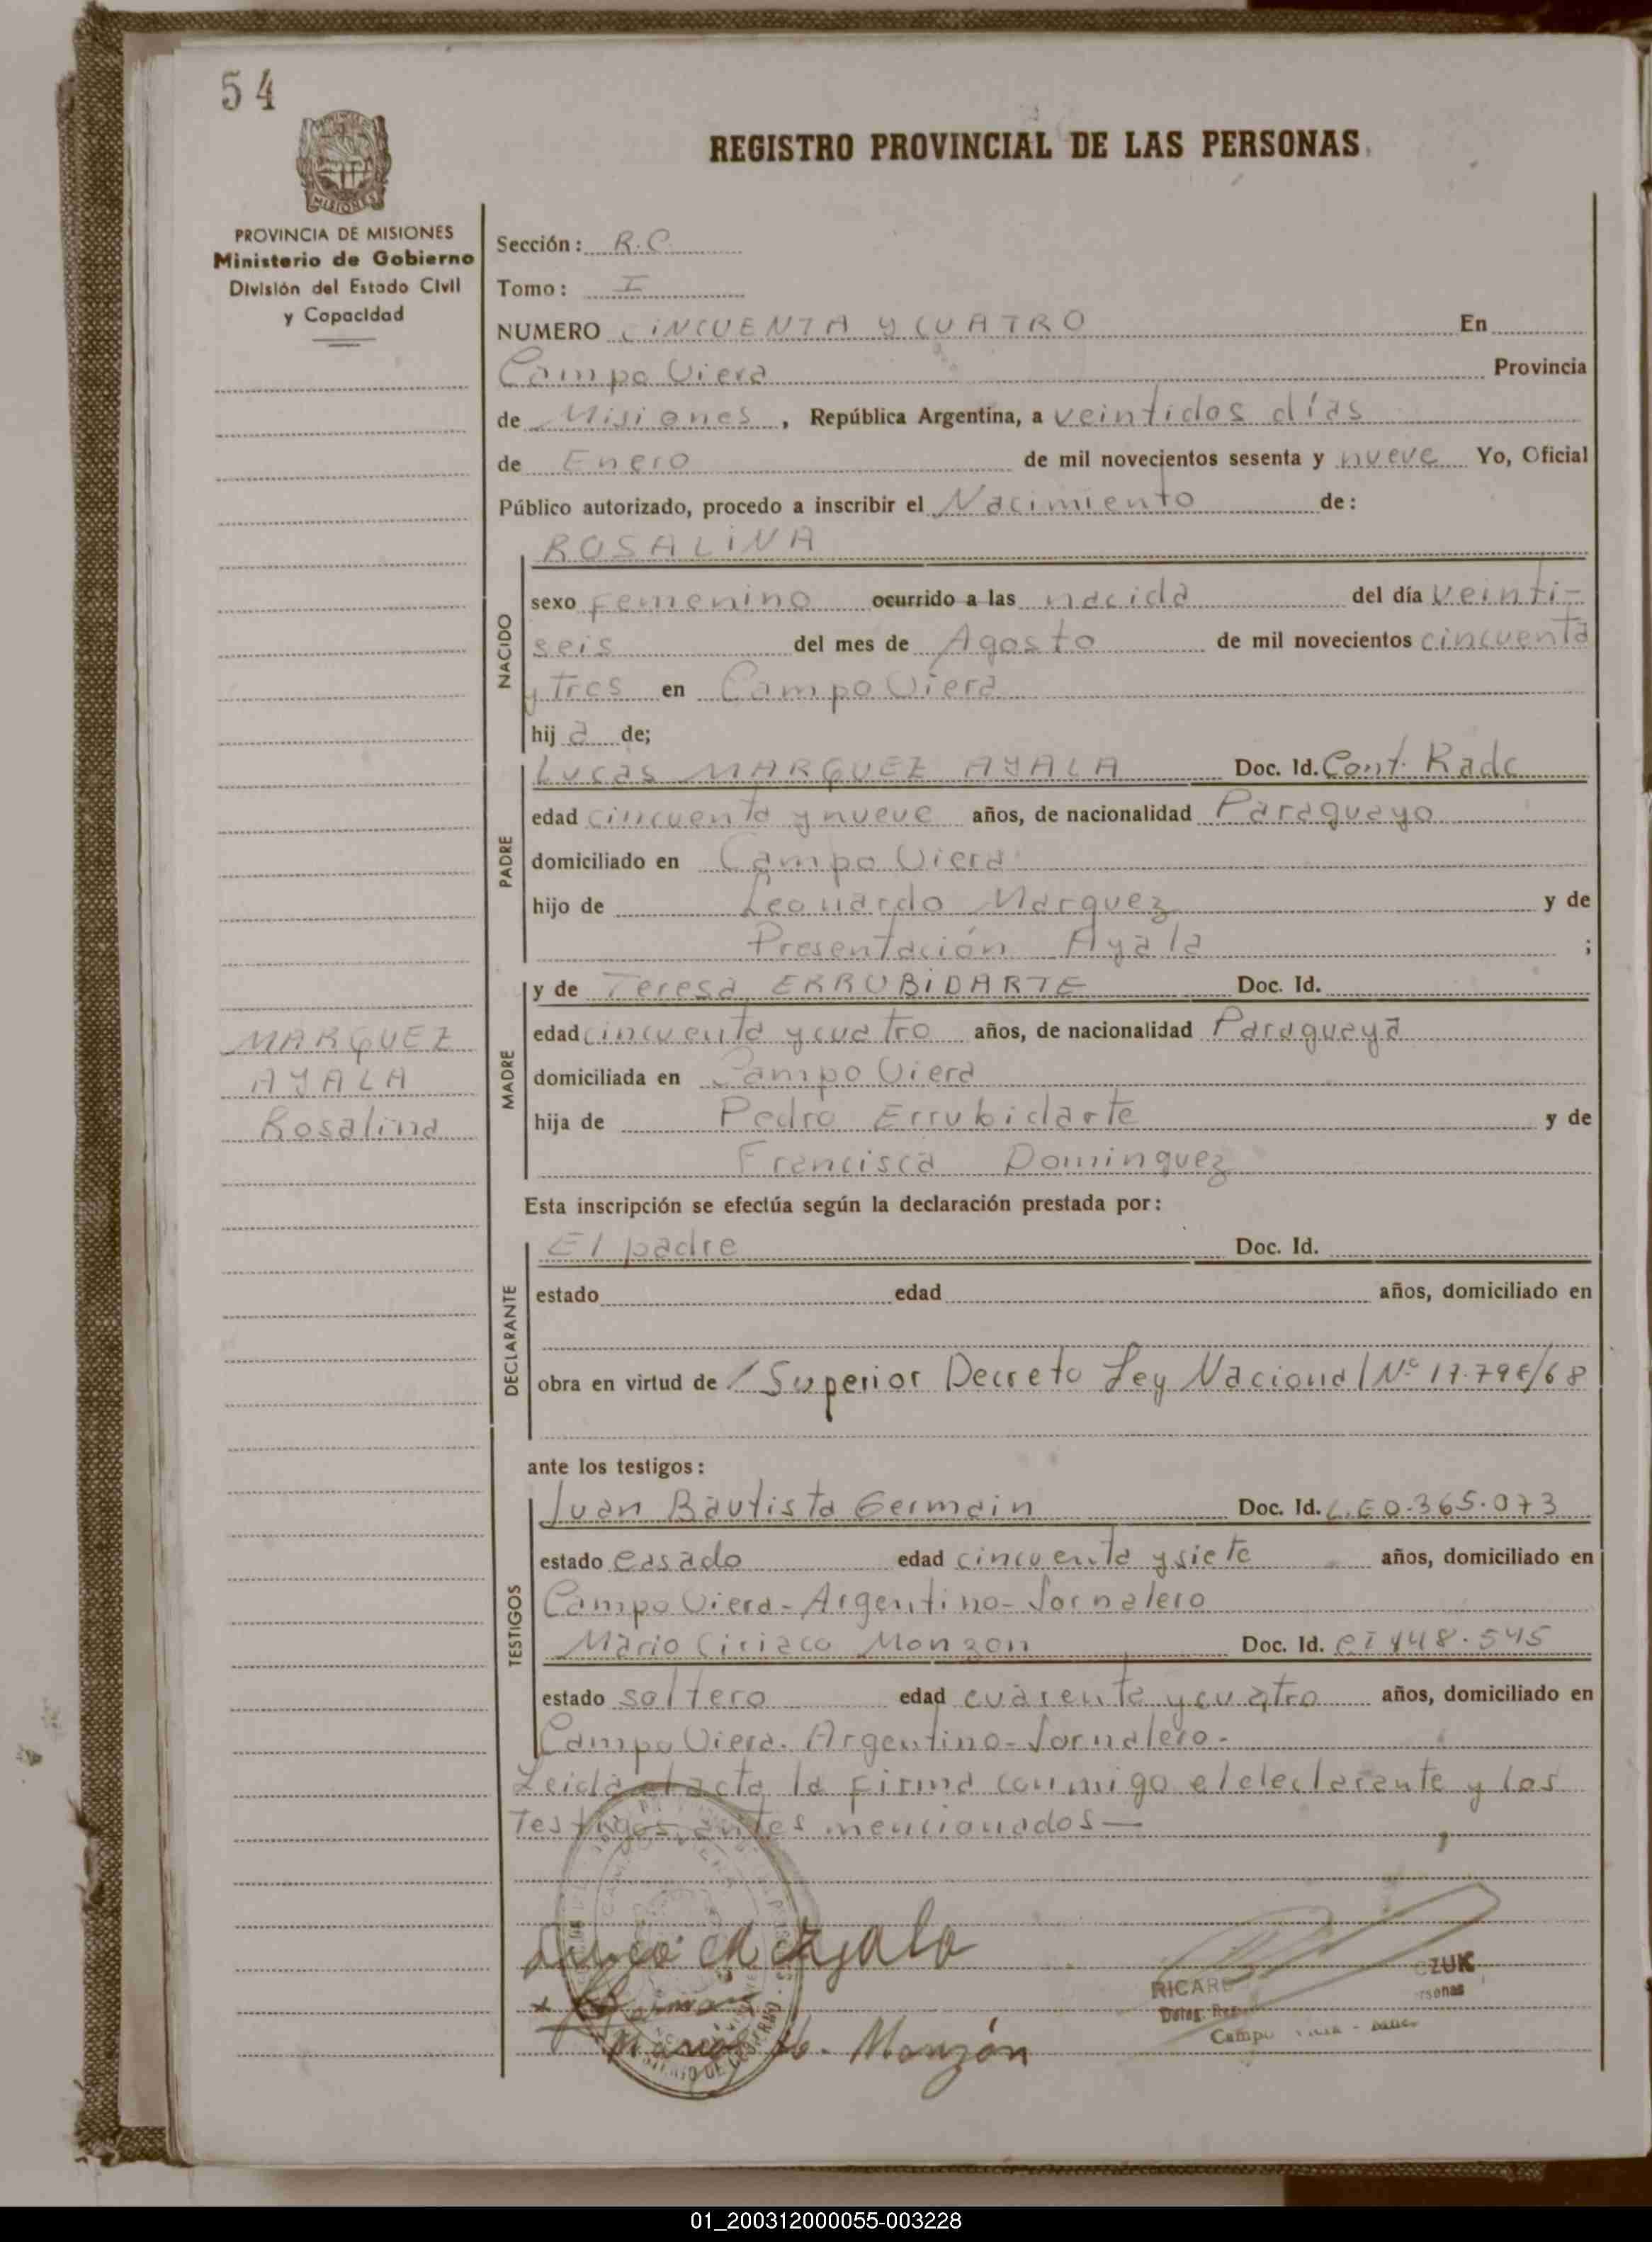 54
REGISTRO PROVINCIAL DE LAS PERSONAS
MISIONES
PROVINCIA DE MISIONES
Ministerio de Gobierno
División del Estado Civil
y Capacidad
Sección: R.C.
Tomo: I
NUMERO CINCUENTA Y CUATRO En
Campo Viera Provincia
de Misiones, República Argentina, a veintidos días
de Enero de mil novecientos sesenta y nueve Yo, Oficial
Público autorizado, procedo a inscribir el Nacimiento de:
NACIDO
ROSALINA
sexo femenino ocurrido a las nacida del día veinti-
seis del mes de Agosto de mil novecientos cincuenta
y tres en Campo Viera
hij a de;
PADRE
Lucas MARQUEZ AYALA Doc. Id. Cont. Radc
edad cincuenta y nueve años, de nacionalidad Paraguayo
domiciliado en Campo Viera
hijo de Leonardo Marquez y de
Presentación Ayala ;
MADRE
y de Teresa ERRUBIDARTE Doc. Id.
edad cincuenta y cuatro años, de nacionalidad Paraguaya
domiciliada en Campo Viera
hija de Pedro Errubidarte y de
Francisca Dominguez
MARQUEZ
AYALA
Rosalina
Esta inscripción se efectúa según la declaración prestada por:
DECLARANTE
El padre Doc. Id.
estado edad años, domiciliado en
obra en virtud de / Superior Decreto Ley Nacional Nº
ante los testigos:
TESTIGOS
Juan Bautista Germain Doc. Id. L.E 0.365.073
estado casado edad cincuenta y siete años, domiciliado en
Campo Viera - Argentino - Jornalero
Mario Ciriaco Monzon Doc. Id. CI 448.545
estado soltero edad cuarenta y cuatro años, domiciliado en
Campo Viera. Argentino - Jornalero -
Leida el acta la firma conmigo el declarante y los
Testigos antes mencionados —
Monzón
RICARD
ZUK
Campo
01_200312000055-003228